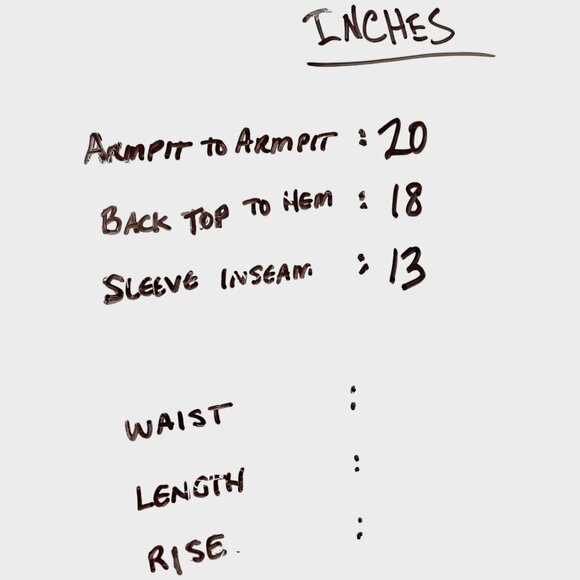 INCHES
ARMPIT TO ARMPIT : 20
BACK TOP TO HEM : 18
SLEEVE INSEAM : 13
WAIST :
LENGTH :
RISE. :